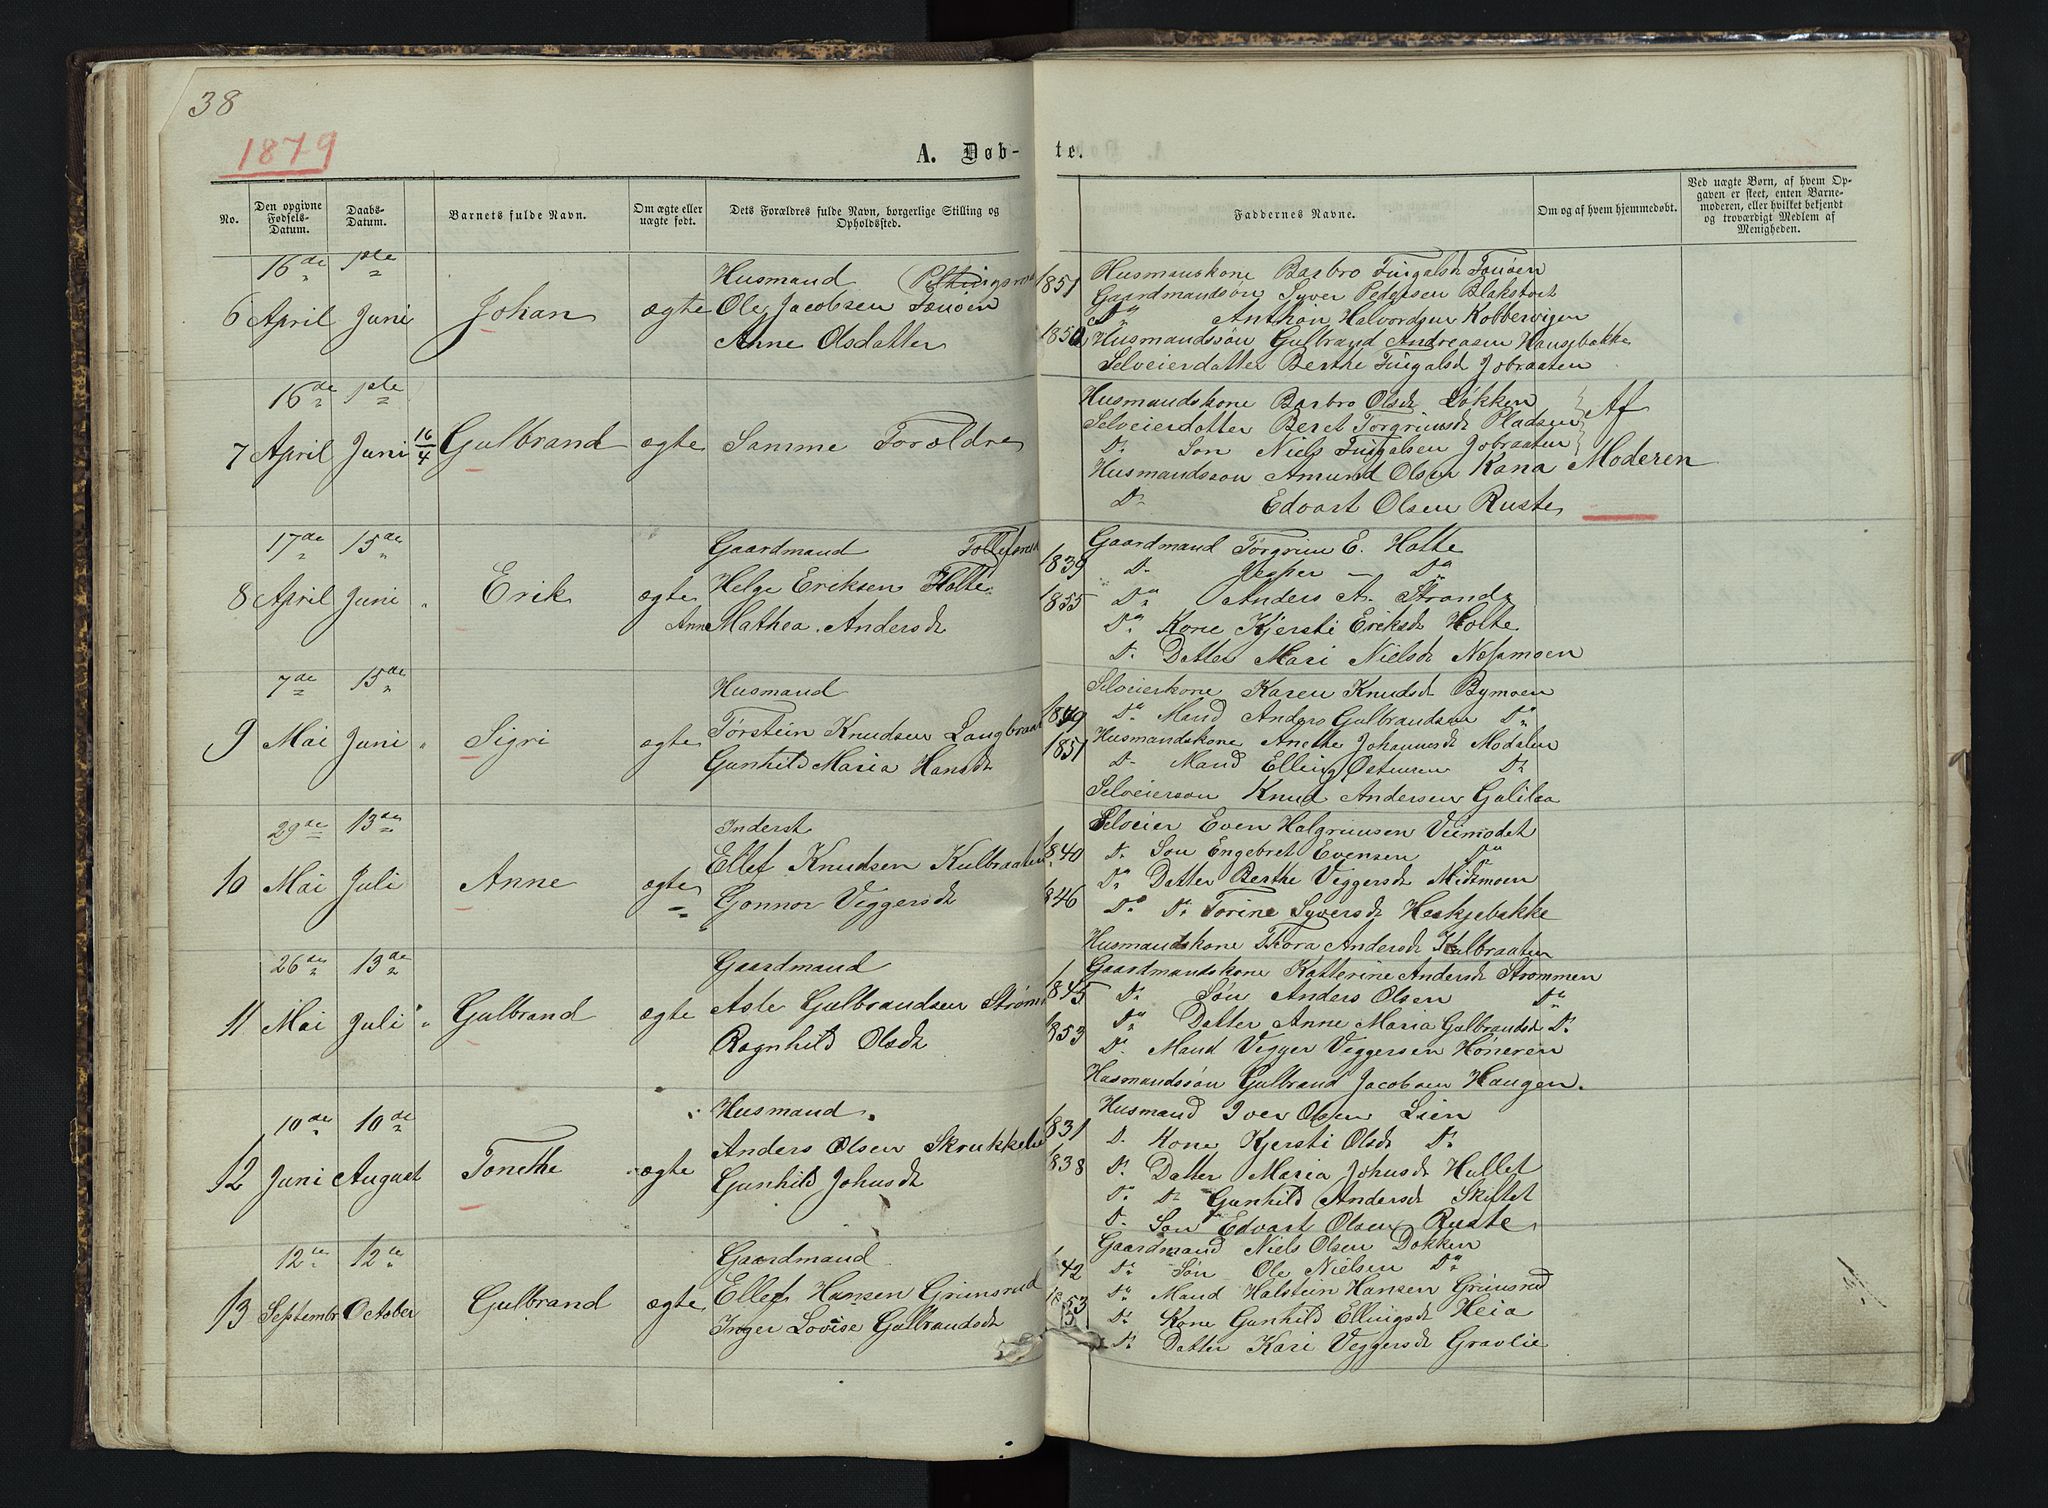 38
1879
A. Døb-
te.
No.
Den opgivne Fødsels-Datum.
Daabs-Datum.
Barnets fulde Navn.
Om ægte eller uægte født.
Dets Forældres fulde Navn, borgerlige Stilling og Opholdssted.
Faddernes Navne.
Om og af hvem hjemmedøbt.
Ved uægte Børn, af hvem Op-
gaven er skeet, enten Barne-
moderen, eller hvilket bekjendt
og troværdigt Medlem af
Menigheden.
16de 1ste
Husmand
6 April Juni Johan ægte Ole Jacobsen
Anne Olsdatter
1851
1850
Husmanskone Barbro Tingalsd
Gaardmandsøn Syver Pedersen Blakstvet
Do Anthon Halvordsen Kobbervigen
Husmandssøn Gulbrand Andreasen Haugbakke
Selveierdatter Berthe Tingalsd Jobraaten
16de 1ste
7 April Juni 16/4 Gulbrand ægte Samme Forældre
Husmandskone Barbro Olsdt Løkken
Selveierdatter Beret Torgrimsdt Pladsen
Do Søn Niels Tingalsen Jobraaten
Husmandsson Amund Olsen Kana
Do Edvart Olsen Ruste
Af
Moderen
17de 15de
Gaardmand
8 April Juni " Erik ægte Helge Eriksen Holte
Anne Mathea Andersdt
1839
1855
Gaardmand Torgrim E. Holte
Do Jesper — Do
Do Anders A. Strande
Do Kone Kjersti Eriksdt Holte
Do Datter Mari Nielsdt Næsmoen
7de 15de
Husmand
9 Mai Juni " Sigri ægte Torstein Knudsen Langbraat
Gunhild Maria Hansdt
1849
1851
Selveierkone Karen Knudsdt Bymoen
Do Mand Anders Gulbrandsen Do
Husmandskone Anethe Johannesdt Modalen
Do Mand Elling Do
Selveierson Knud Andersen Galilæa
29de 13de
Inderst
10 Mai Juli Anne ægte Ellef Knudsen Kulbraaten
Gonnor Viggersdt
1840
1846
Selveier Even Halgrimsen Veimodet
Do Søn Engebret Evensen Do
Do Datter Berthe Viggersdt Midtmoen
Do Do Torine Syversdt Heskjebakke
Husmandskone Thora Andersdt Kulbraaten
26de 13de
Gaardmand
11 Mai Juli " Gulbrand ægte Asle Gulbrandsen Strøm
Ragnhild Olsdt
1845
1853
Gaardmandskone Katterine Andersdt Strømmen
Do Søn Anders Olsen Do
Do Datter Anne Maria Gulbrandsdt Do
Do Mand Vigger Viggersen Høneren
Husmandssøn Gulbrand Jacobsen Haugen.
10de 10de
Husmand
12 Juni August Tonethe ægte Anders Olsen Skrukkelie
Gunhild Johnsdt
1831
1838
Husmand Iver Olsen Lien
Do Kone Kjersti Olsdt Do
Do Datter Maria Johnsdt Hullet
Do Do Gunhild Andersdt Skiftet
Do Søn Edvart Olsen Ruste
12te 12te
Gaardmand
13 Septembr October Gulbrand ægte Ellef Hansen Grimsrud
Inger Lovise Gulbrandsdt
42
53
Gaardmand Niels Olsen Dokken
Do Søn Ole Nielsen Do
Do Mand Halstein Hansen Grimsrud
Do Kone Gunhild Ellingsdt Heia
Do Datter Kari Viggersdt Gravlie